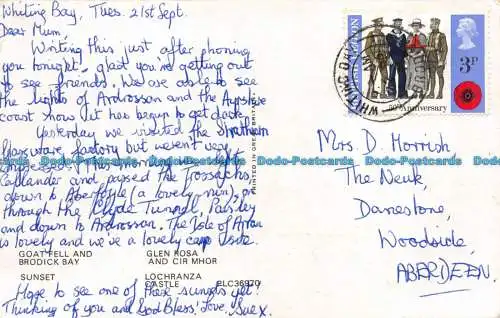 Whiting Bay, Tues. 21st Sept.
Dear Mum,
Writing this just after phoning
you tonight, glad you're getting out
to see friends. We are able to see
the lights of Ardrossan and the Ayrshire
coast now it has begun to get dark.
Yesterday we visited the Strathearn
Glassware factory but weren't very
impressed. This morning we left
Callander and passed the Trossachs,
down to Aberfoyle (a lovely run), on
through the Clyde Tunnel, Paisley
and down to Ardrossan. The Isle of Arran
is lovely and we've a lovely camp site.
GOAT FELL AND
BRODICK BAY
GLEN ROSA
AND CIR MHOR
SUNSET
LOCHRANZA
CASTLE
PLC36970
Hope to see one of these sunsets yet!
Thinking of you and God Bless, love, Sue x.
PRINTED IN GREAT BRITAIN
WHITING
50th Anniversary
3p
Mrs. D. Horrish
The Neuk,
Danestone,
Woodside,
ABERDEEN.
Dodo-Postcards Dodo-Postcards Dodo-Postcards Dodo-Postcards